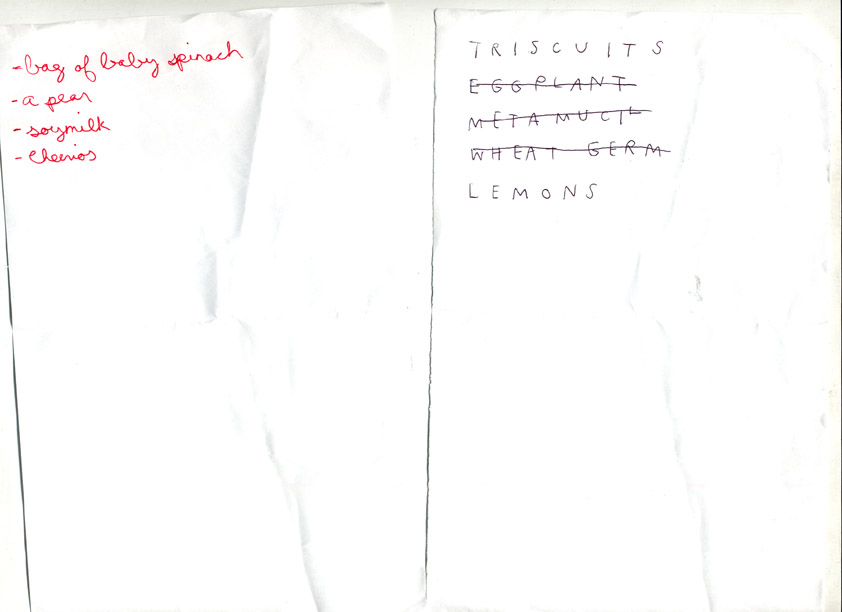 -bag of baby spinach
-a pear
-soymilk
-Cheerios
TRISCUITS
EGGPLANT
METAMUCIL
WHEAT GERM
LEMONS